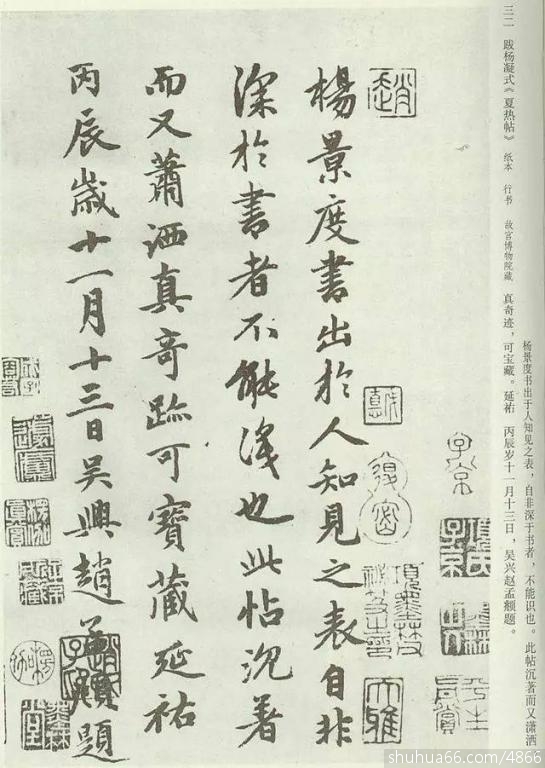 三二 跋杨凝式《夏热帖》 纸本 行书 故宫博物院藏
杨景度书出于人知见之表，自非深于书者，不能识也。此帖沉著而又潇洒
真奇迹，可宝藏。延祐 丙辰岁十一月十三日，吴兴赵孟頫题。
子京
趙
楊景度書出於人知見之表自非
深於書者不能識也此帖沉著
而又蕭洒真奇跡可寶藏延祐
丙辰歲十一月十三日吳興趙孟頫題
shuhua66.com/4866